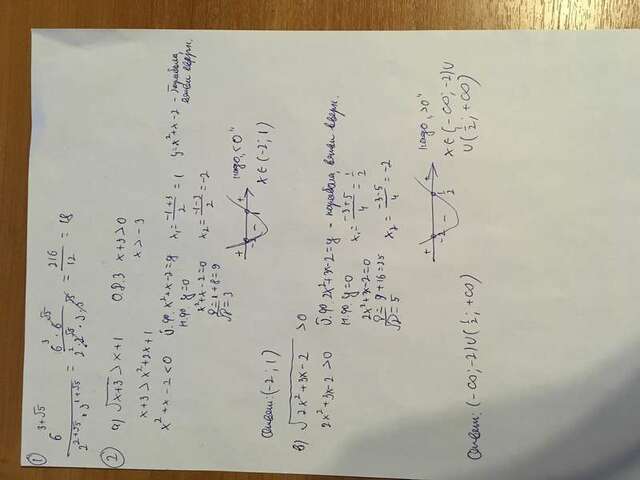 1
6^{3+√5} / 2^{2+√5} · 3^{1+√5} = 6^3 · 6^{√5} / 2^2 · 2^{√5} · 3 · 3^{√5} = 216 / 12 =
2 а) √x+3 > x+1 О.В.З x+3>0
x > -3
x+3 > x²+2x+1
x²+x-2<0 x²+x-2=y x₁= -1+3 / 2 = 1 y=x²+x-2 - Парабола, ветви вверх.
н.ф y=0
x²+x-2=0 x₂= -1-3 / 2 = -2
D=1+8=9
√D=3
+ -2 - 1 + надо „<0"
x∈(-2; 1)
Ответ: (-2; 1)
в) √2x²+3x-2 >0
2x²+3x-2>0 2x²+3x-2=y - парабола, ветви вверх.
н.ф y=0 x₁= -3+5 / 4 = 1/2
2x²+3x-2=0
D=9+16=25 x₂= -3-5 / 4 = -2
√D=5
+ -2 - 1/2 + надо „>0"
x∈(-∞; -2)∪
∪(1/2; +∞)
Ответ: (-∞; -2)∪(1/2; +∞)